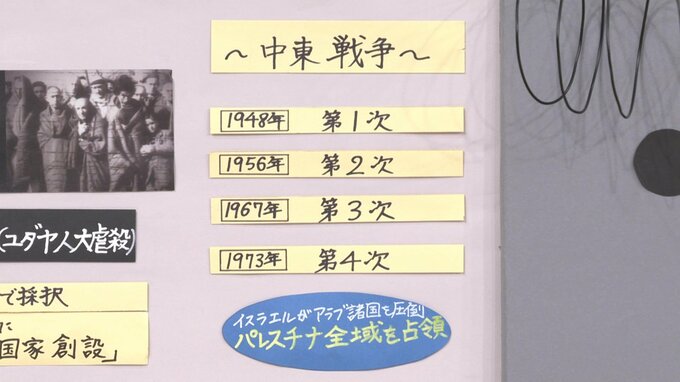 ～中東戦争～
1948年 第1次
1956年 第2次
1967年 第3次
1973年 第4次
イスラエルがアラブ諸国を圧倒
パレスチナ全域を占領
(ユダヤ人大虐殺)
で採択
に
国家創設」